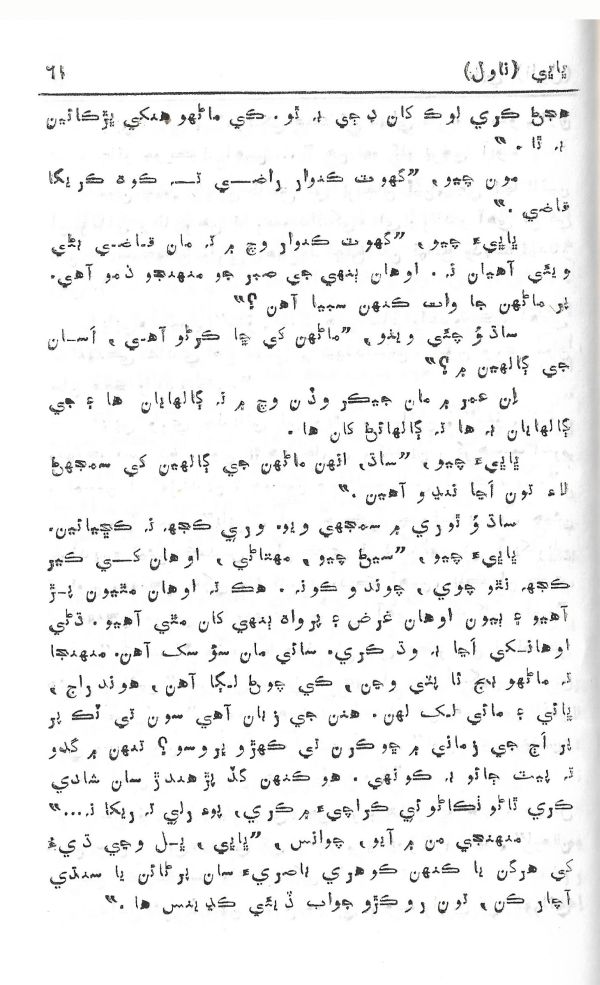 ڀاڀي (ناول)
٦١
هجڻ ڪري لوڪ کان ڊڄي به ٿو. ڪي ماڻهو هنکي ڀڙڪائين
به ٿا.“
مون چيو، ”گهوٽ ڪنوار راضي ته ڪوھ ڪريگا
قاضي.“
ڀاڀيءَ چيو، ”گهوٽ ڪنوار وچ ۾ ته مان قاضي بڻي
ويٺي آهيان نه. اوهان ٻنهي جي صبر جو منهنجو ذمو آهي.
پر ماڻهن جا وات ڪنهن سبيا آهن؟“
ساڌڙ چٿي ويٺو، ”ماڻهن کي ڇا ڪرڻو آهي، اَسان
جي ڳالهين ۾؟“
اِن عمر ۾ مان جيڪر وڏن وچ ۾ نه ڳالهايان ها ۽ جي
ڳالهايان به ها ته ڳالهائڻ کان ها.
ڀاڀيءَ چيو، ”ساڌ، انهن ماڻهن جي ڳالهين کي سمجهڻ
لاءِ تون اَڃا ننڍو آهين.“
ساڌڙ ٿوري ۾ سمجهي ويو. وري ڪجهه نه ڪڇيائين.
ڀاڀيءَ چيو، ”سيڻ چيو، مهتاڻي، اوهان کي ڪير
ڪجهه نٿو چوي، چوندو ڪونه. هڪ ته اوهان مٿيون پڙ
آهيو ۽ ٻيون اوهان غرض ۽ پرواهه ٻنهي کان مٿي آهيو. ڌڻي
اوهانکي اَڃا به وڌ ڪري. سائي مان سؤ سک آهن. منهنجا
ته ماڻهو ٻڃ ٿا پٽي وڃن، ڪي چوڻ لڳا آهن، هوندراج،
ڀائي ۽ مائي لڪ لهن. هنن جي زبان آهي سون تي ٽڪ پر
پر اَڄ جي زماني ۾ ڇوڪرن تي ڪهڙو ڀروسو؟ تنهن ۾ گدو
ته پيٽ ڄائو به ڪونهي. هو ڪنهن گڏ پڙهندڙ سان شادي
ڪري ٿاڻو ٺڪاڻو ئي ڪراچيءَ ۾ ڪري، پوءِ رلي نه ريکا نه...“
منهنجي من ۾ آيو، چوانس، ”ڀاڀي، ڀل وڃي ڌيءُ
کي هرگن يا ڪنهن ڪوهري ٻاصريءَ سان پرڻائن يا سنڌي
آچار ڪن، تون روڪڙو جواب ڏيئي ڪڍينس ها.“